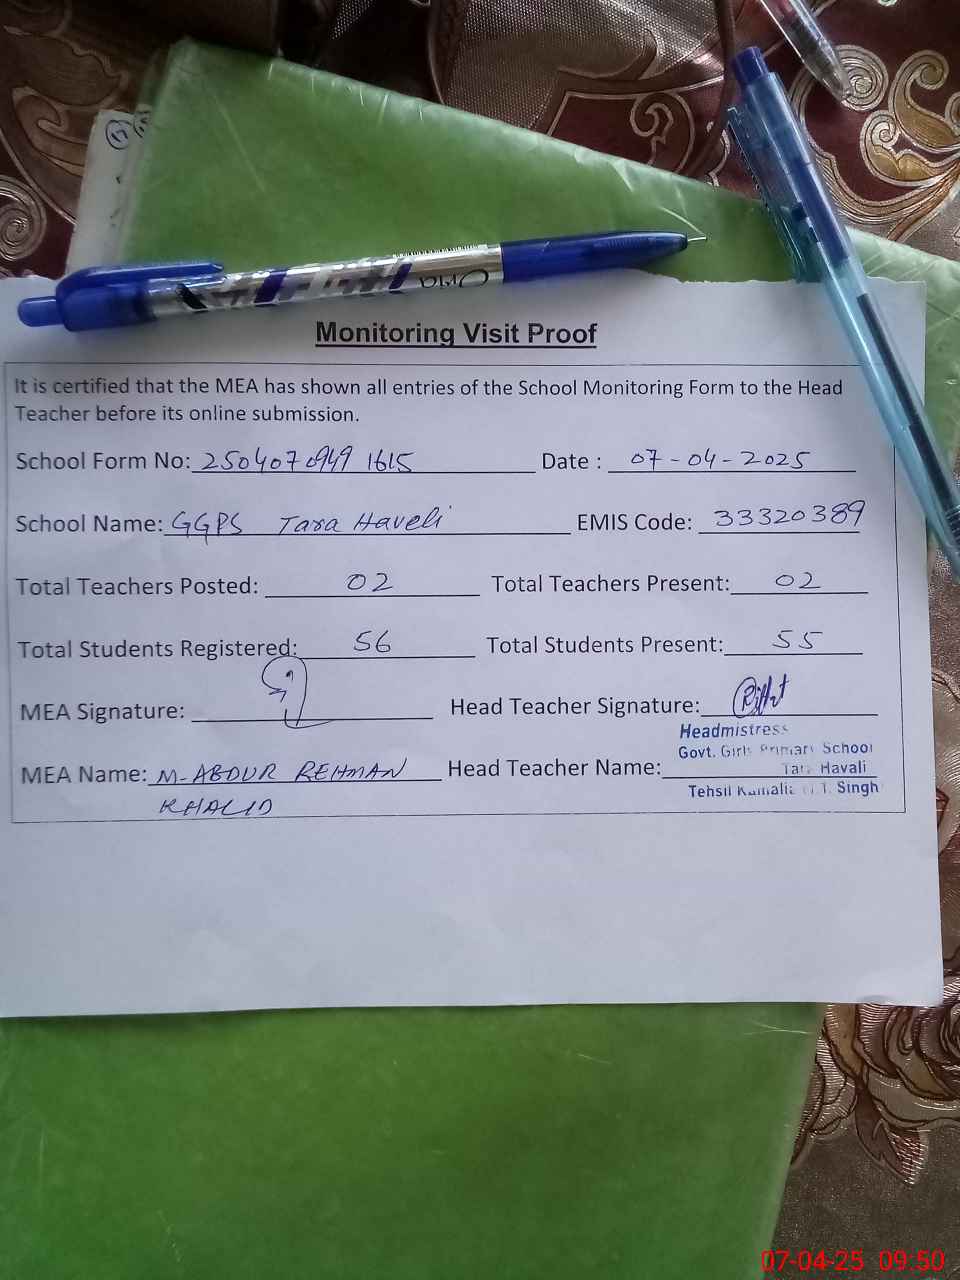 Monitoring Visit Proof
It is certified that the MEA has shown all entries of the School Monitoring Form to the Head
Teacher before its online submission.
School Form No: 2504070949 1615 Date : 07-04-2025
School Name: GGPS Tara Haveli EMIS Code: 33320389
Total Teachers Posted: 02 Total Teachers Present: 02
Total Students Registered: 56 Total Students Present: 55
MEA Signature: Head Teacher Signature:
Headmistress
Govt. Girls Primary School
MEA Name: M-ABDUR REHMAN Head Teacher Name: Tara Havali
KHALID
Tehsil Kamalia T.T. Singh
07-04-25 09:50